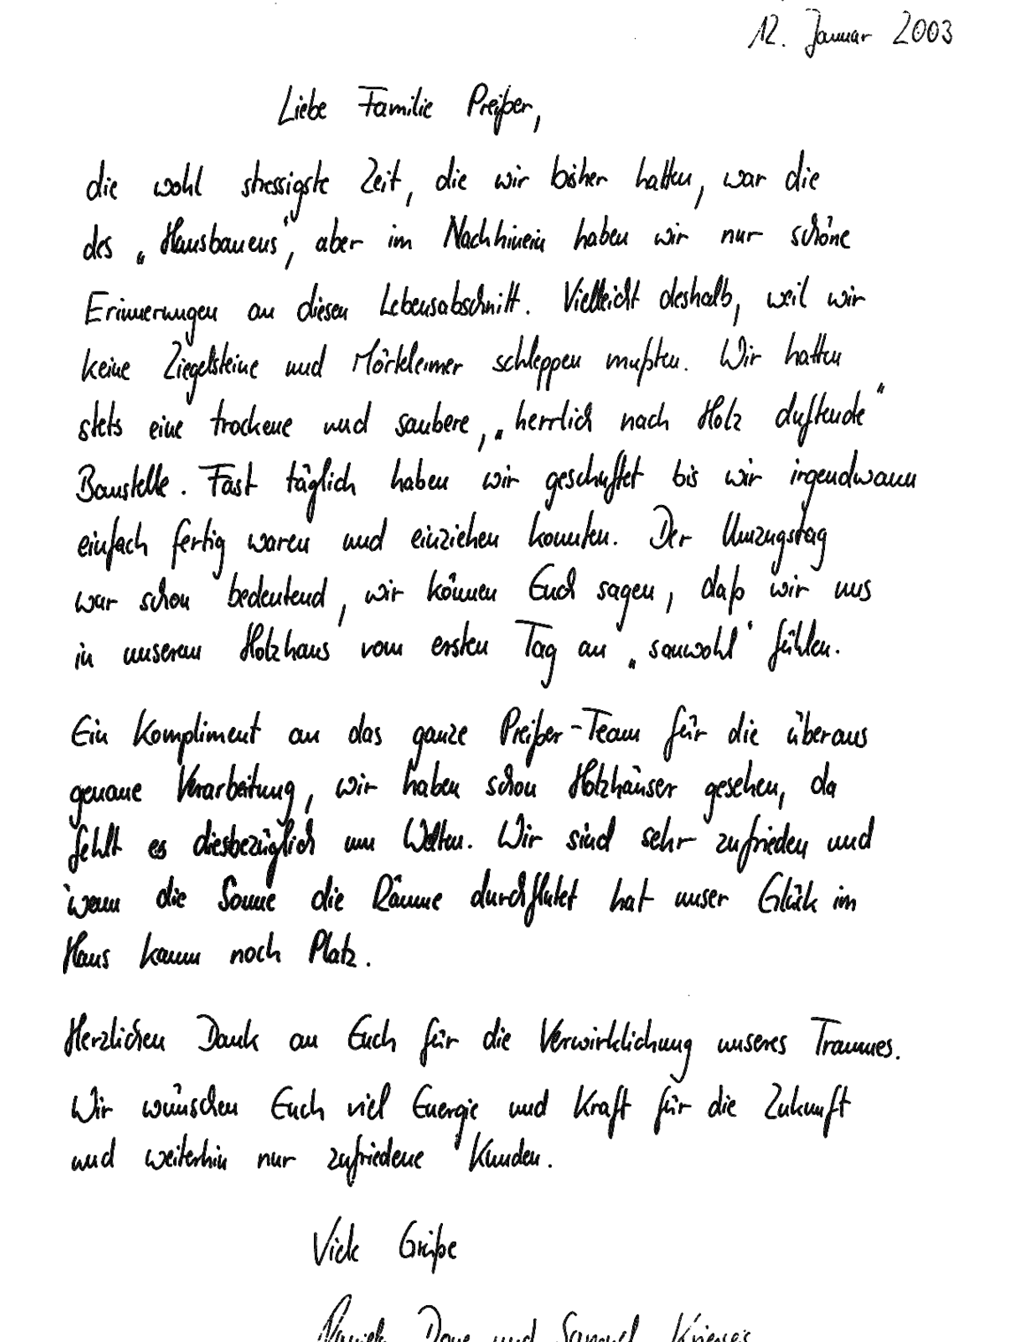 12. Januar 2003
Liebe Familie Preißer,
die wohl stressigste Zeit, die wir bisher hatten, war die
des „Hausbauens", aber im Nachhinein haben wir nur schöne
Erinnerungen an diesen Lebensabschnitt. Vielleicht deshalb, weil wir
keine Ziegelsteine und Mörteleimer schleppen mußten. Wir hatten
stets eine trockene und saubere, „herrlich nach Holz duftende"
Baustelle. Fast täglich haben wir geschuftet bis wir irgendwann
einfach fertig waren und einziehen konnten. Der Umzugstag
war schon bedeutend, wir können Euch sagen, daß wir uns
in unserem Holzhaus vom ersten Tag an „sauwohl" fühlen.
Ein Kompliment an das ganze Preißer-Team für die überaus
genaue Verarbeitung, wir haben schon Holzhäuser gesehen, da
fehlt es diesbezüglich um Welten. Wir sind sehr zufrieden und
wenn die Sonne die Räume durchflutet hat unser Glück im
Haus kaum noch Platz.
Herzlichen Dank an Euch für die Verwirklichung unseres Traumes.
Wir wünschen Euch viel Energie und Kraft für die Zukunft
und weiterhin nur zufriedene Kunden.
Viele Grüße
und